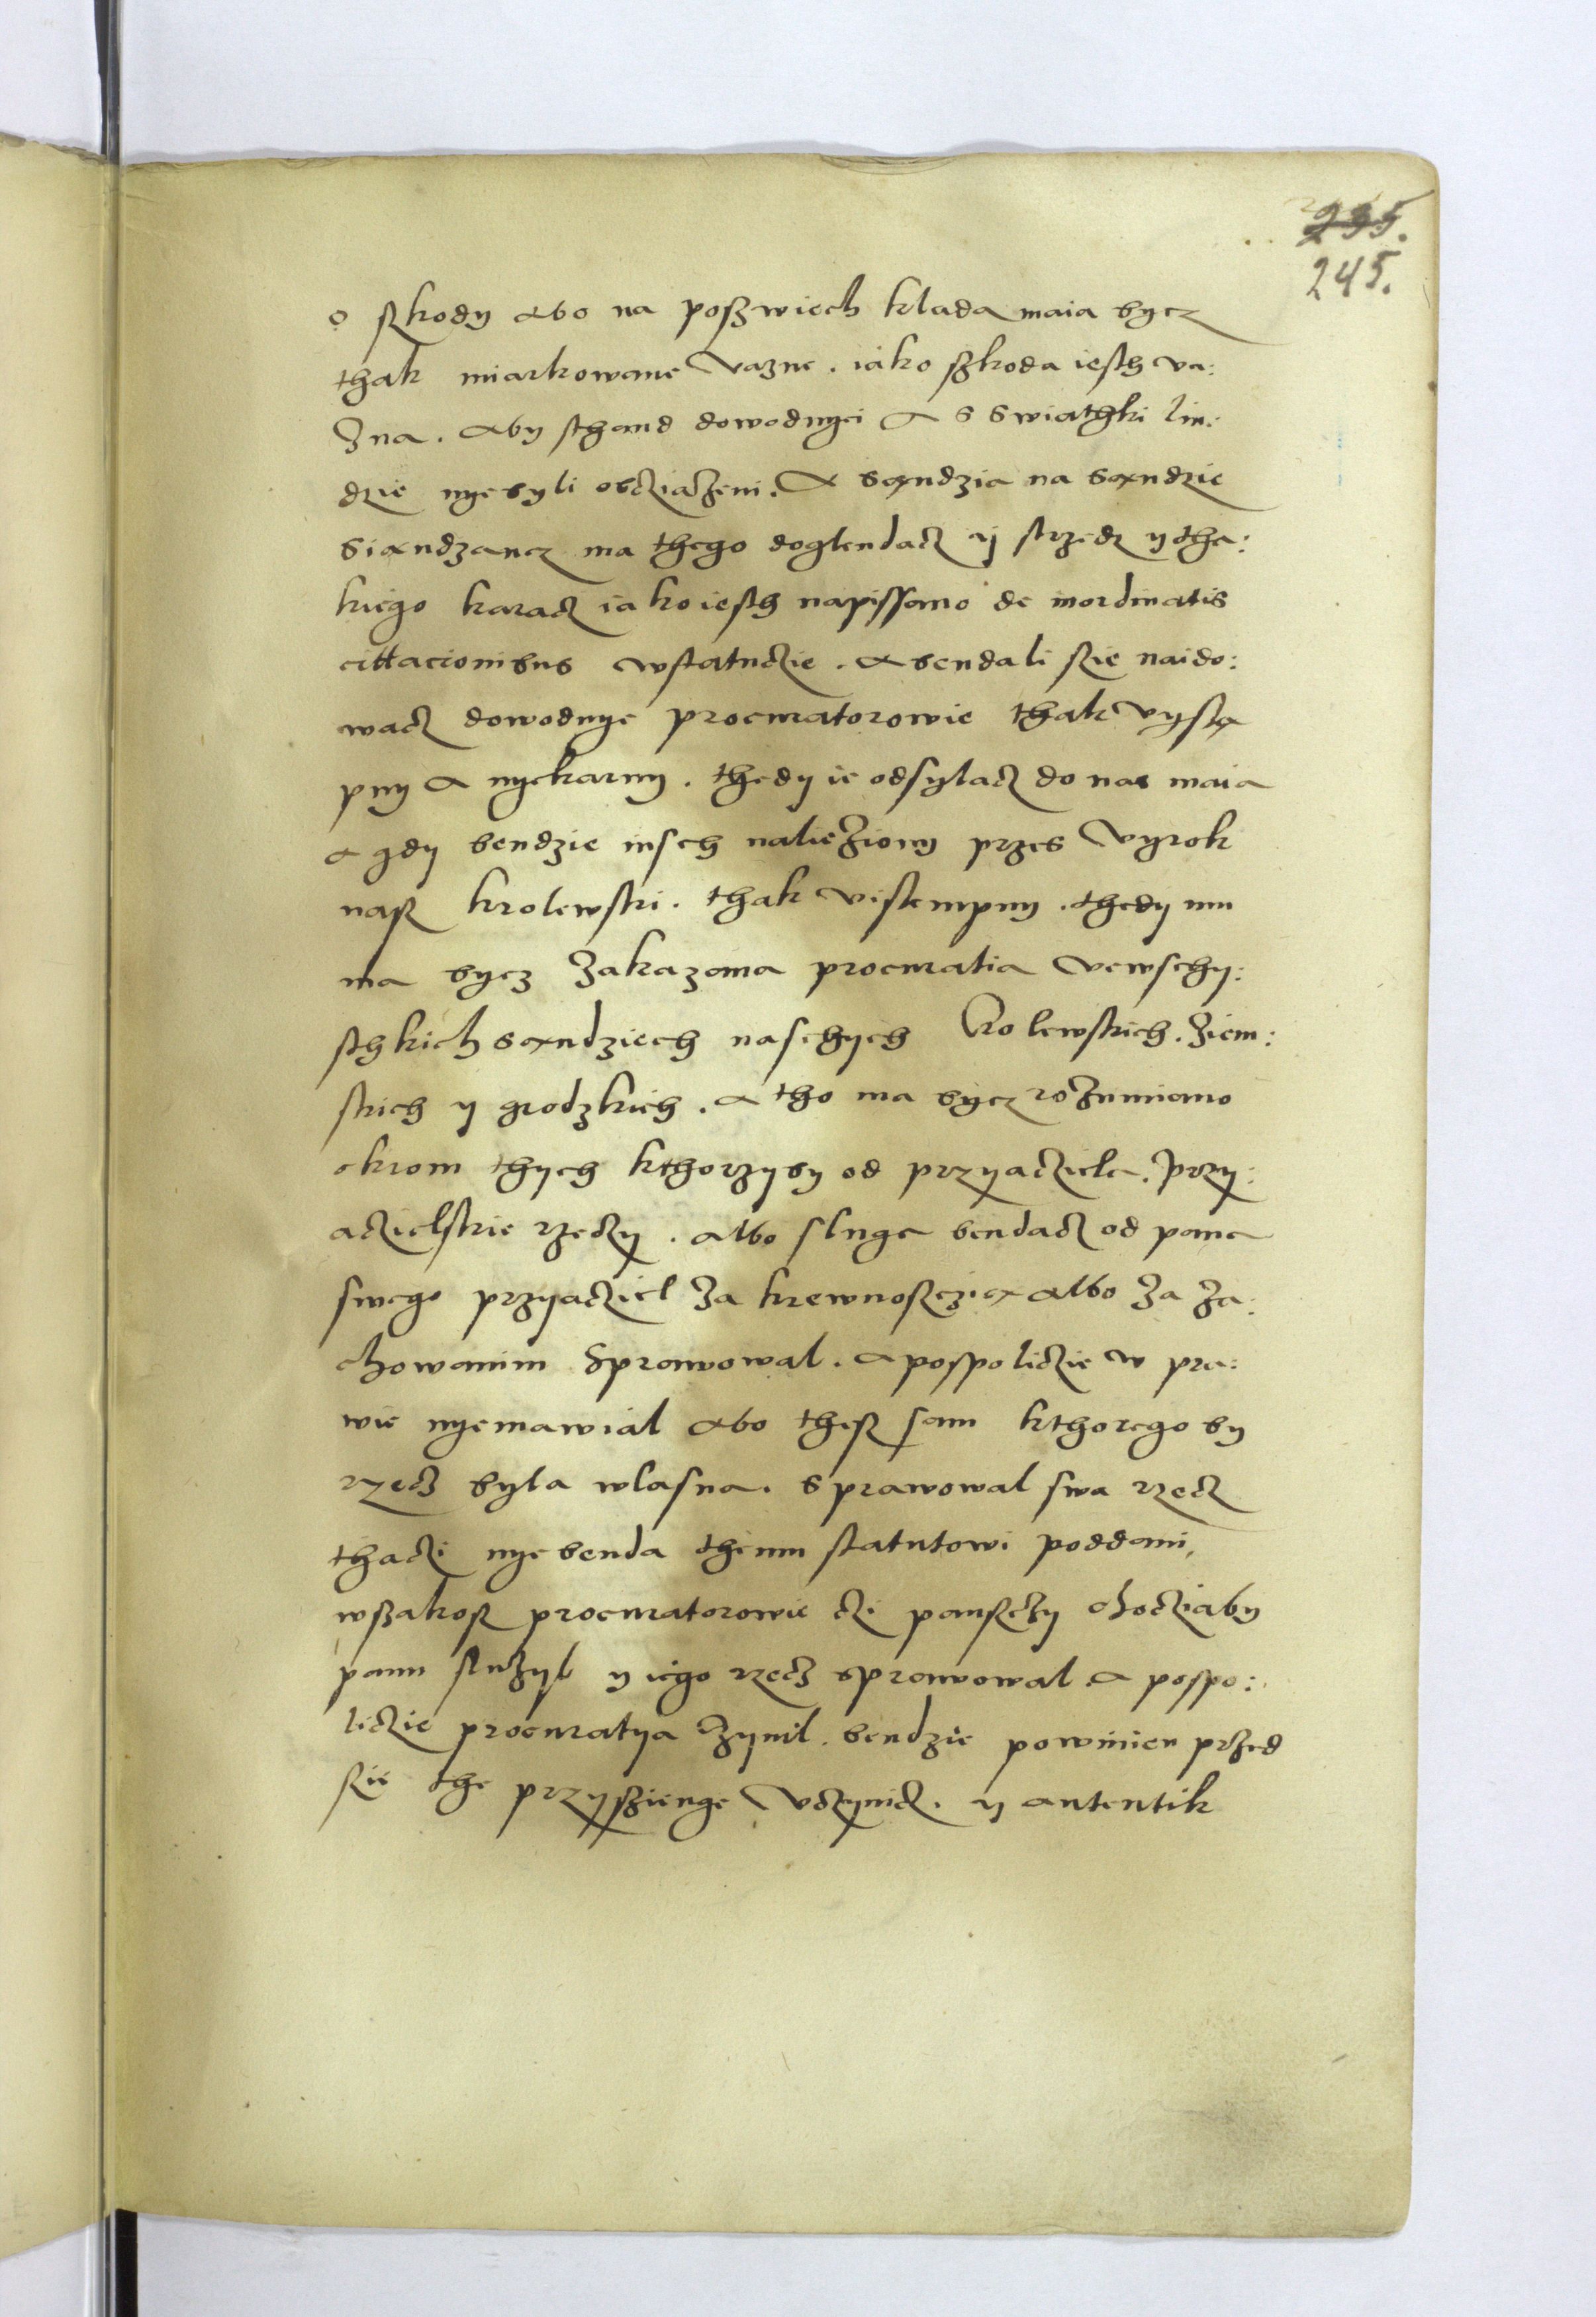 235.
245.
o ſzkody abo na poſzwiech klada maia bycz
thak miarkowane vazne. iako ſzkoda ieſth va:
zna. aby ſthand dowodnyei a s swiathki liu:
dzie nyebyli obcziazeni. A sąndzia na sąndzie
siąndzancz ma thego doglendacz y ſtrzedz y tha:
kiego karacz iako ieſth napiſſano de inordinatis
cittacionibus wſtatuczie. a bendali ſzie naido:
wacz dowodnye procuratorowie thak vyſtą
pny a nyekarny. thedy ie odſylacz do nas maia
a gdy bendzie inſch nalieziony przes vyrok
naſz krolewſki. thak viſtempny. thedy mu
ma bycz zakazana procuratia vewſchy:
ſthkich sąndziech naſchych krolewſkich. ziem:
ſkich y grodzkich. a tho ma bycz rozumiano
okrom thych kthorzyby od przyacziela. przy:
aczielſkie rzeczy. albo ſluga bendacz od pana
ſwego przyacziel za krewnoſzczią albo za za:
chowanim sprawowal. a poſpoliczie w pra:
wie nyemawial abo theſz ſam kthorego by
rzecz byla wlaſna. sprawowal ſwa rzecz
thaczi nyebenda themu ſtatutowi poddani,
wſzakoſz procuratorowie czi panſczy chocziaby
panu ſluzyl y iego rzecz sprawowal a poſpo:
liczie procuratya czynil. bendzie powinien przed
ſzie the przyſzienge vczynicz. y autentik